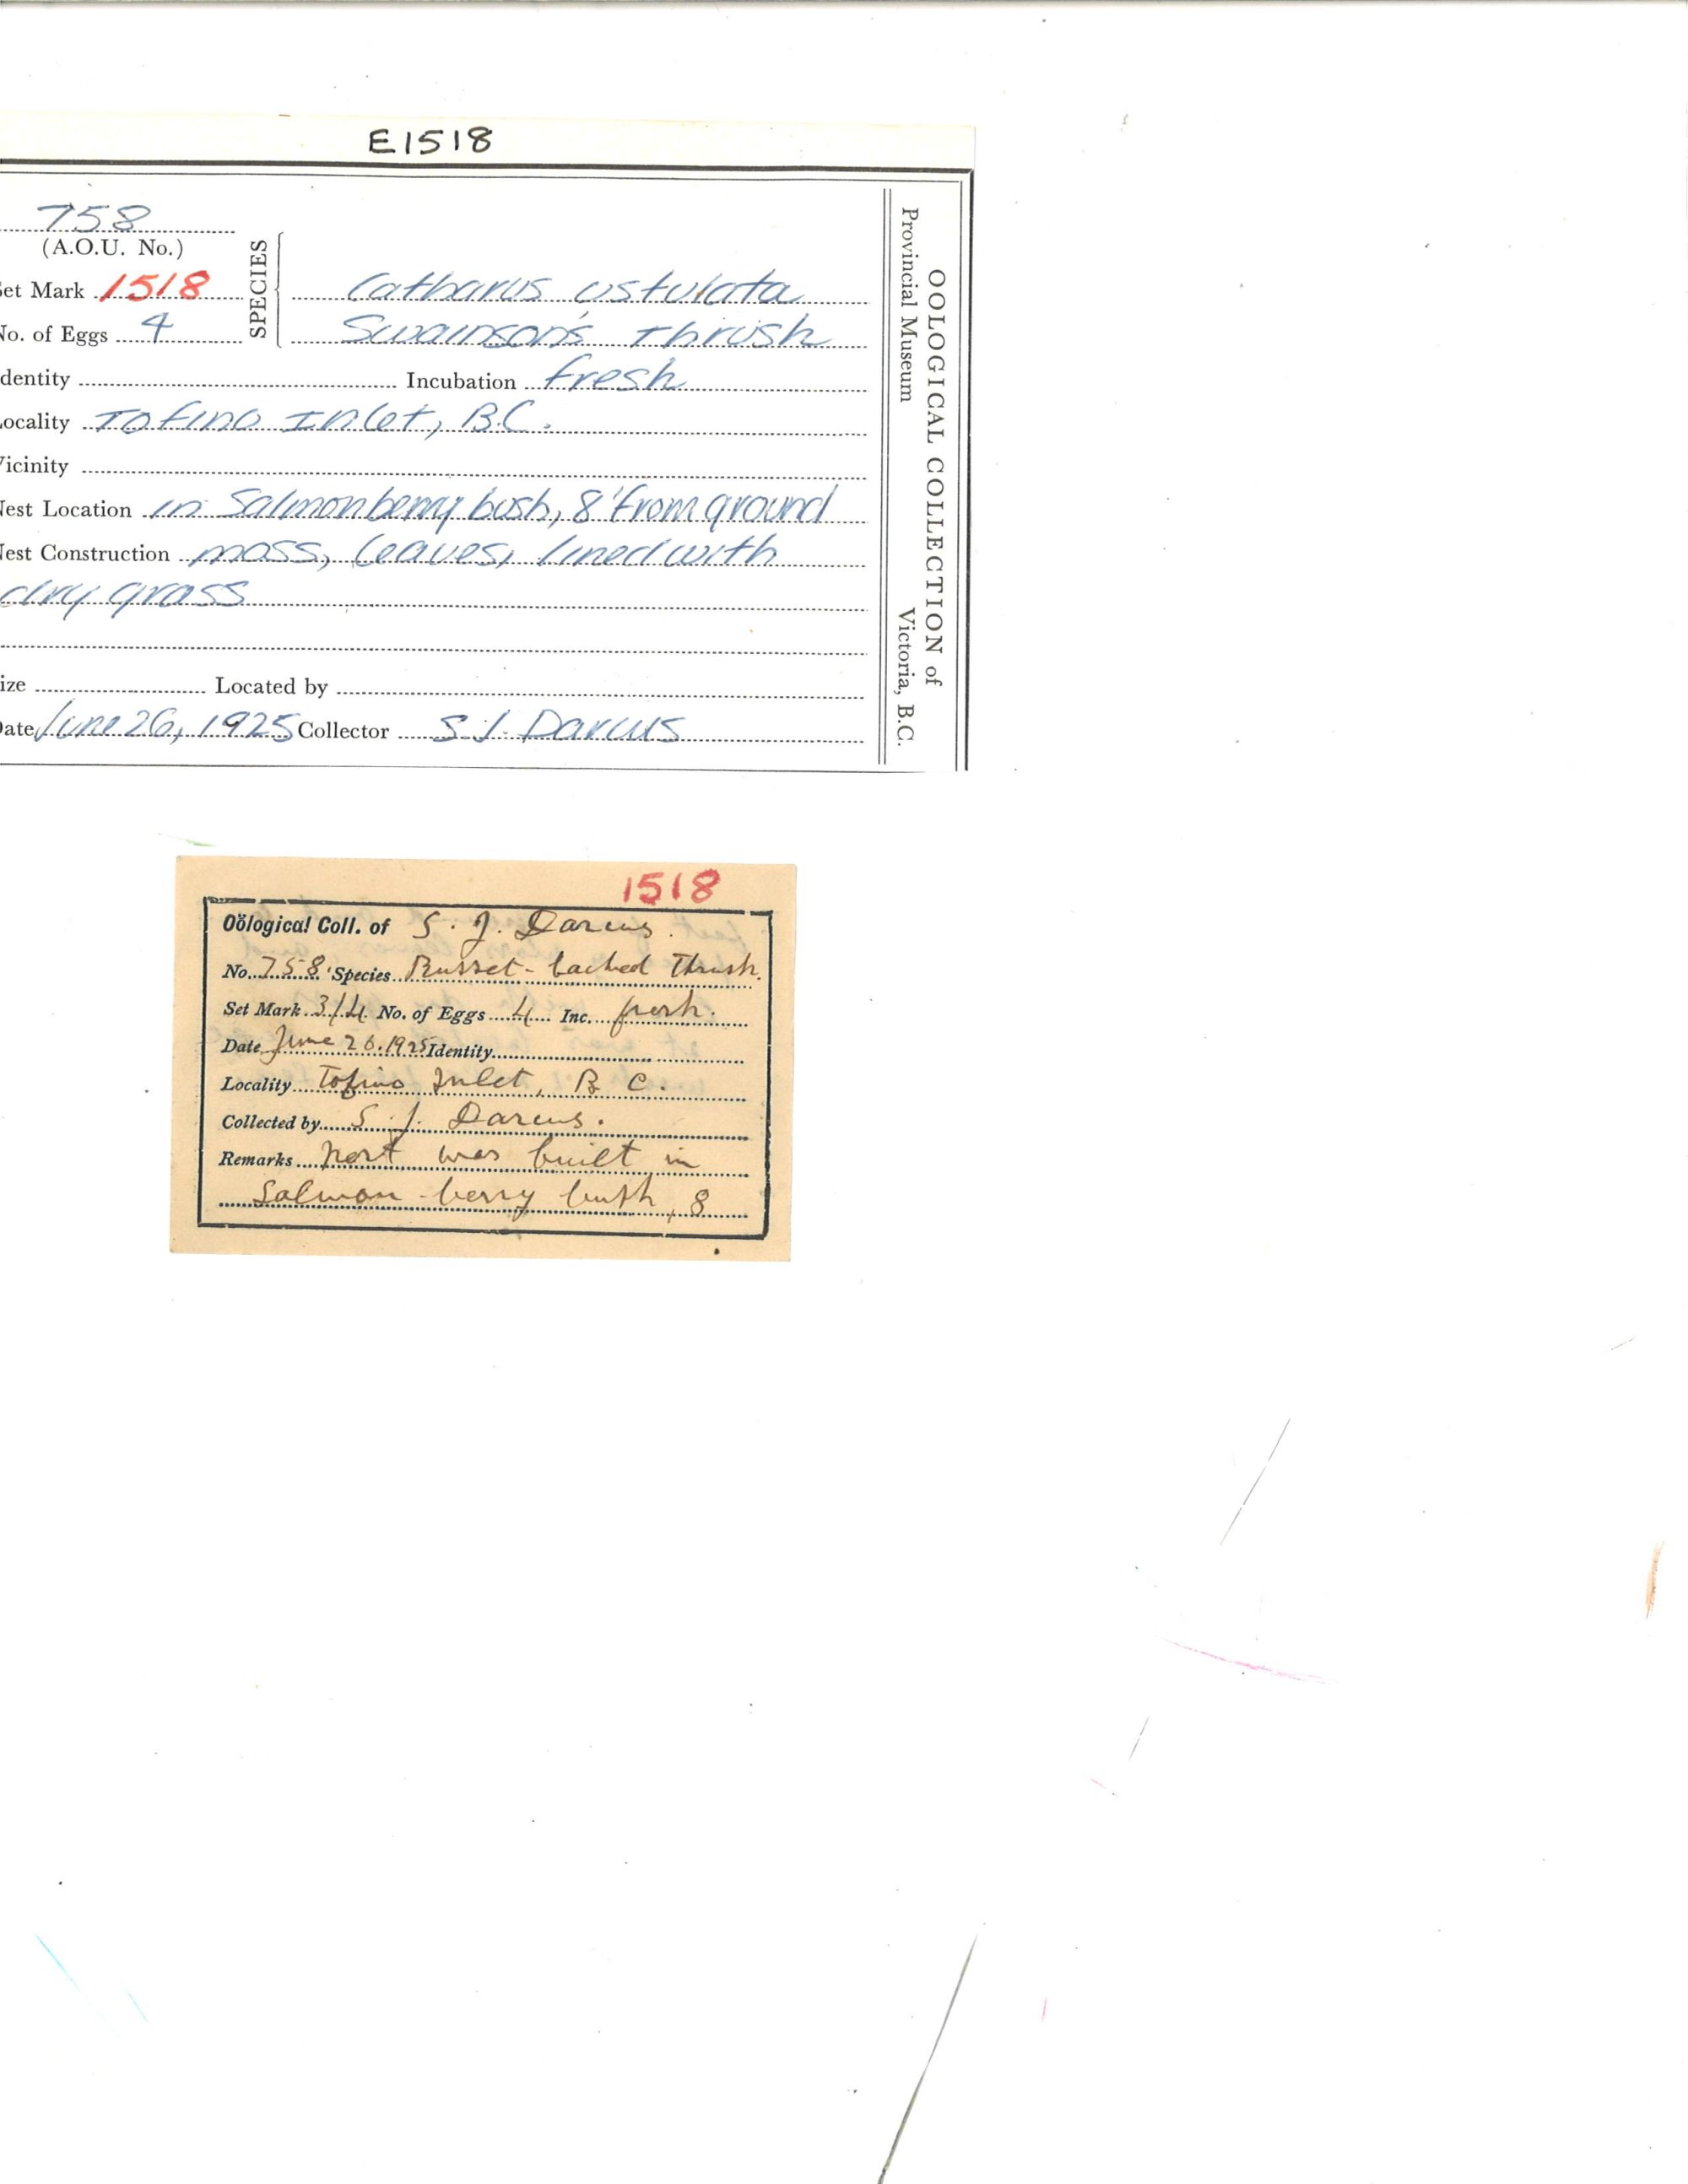 E1518
758
(A.O.U. No.)
et Mark 1518
No. of Eggs 4
SPECIES
Catharus ustulata
Swainson's Thrush
dentity Incubation fresh
ocality Tofino Inlet, B.C.
icinity
est Location in Salmonberry bush, 8' from ground
est Construction moss, leaves, lined with
dry grass
ize Located by
ate June 26, 1925 Collector S.J. Darcus
OOLOGICAL COLLECTION of
Provincial Museum Victoria, B.C.
1518
Oölogical Coll. of S. J. Darcus.
No. 758 Species Russet-backed Thrush.
Set Mark 3/4 No. of Eggs 4 Inc. fresh.
Date June 26.1925 Identity
Locality Tofino Inlet, B C.
Collected by S. J. Darcus.
Remarks Nest was built in
Salmon-berry bush, 8